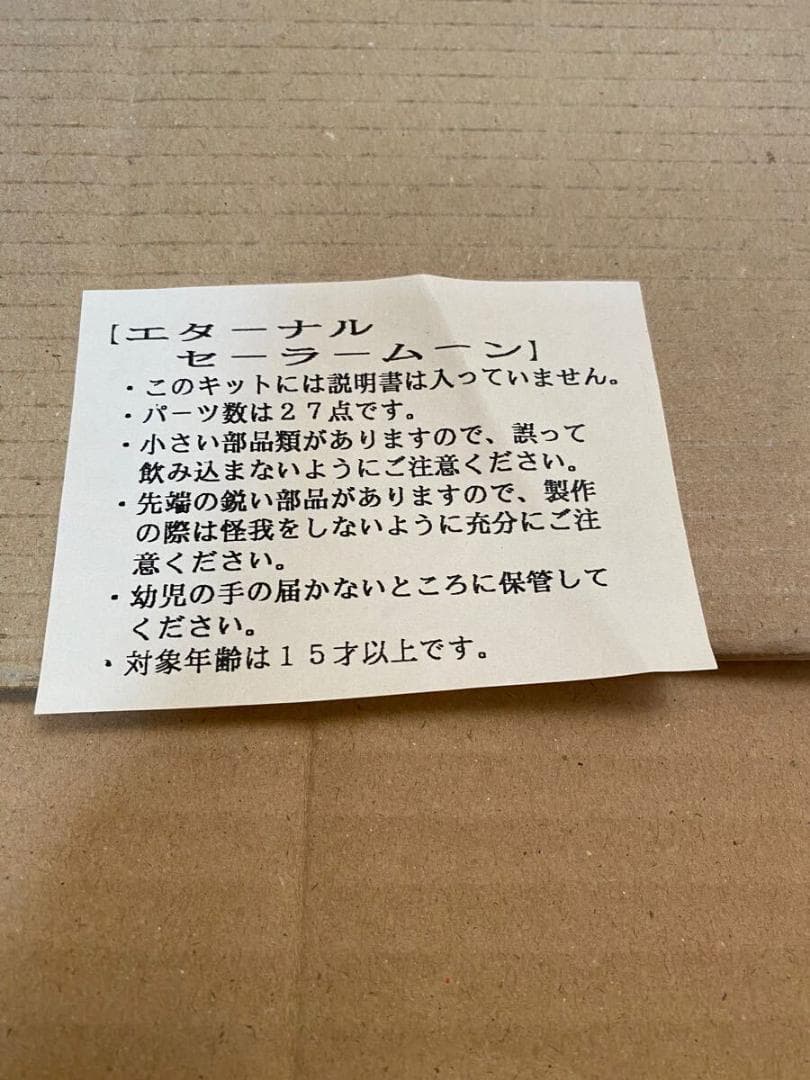 【エターナル
セーラームーン】
・このキットには説明書は入っていません。
・パーツ数は２７点です。
・小さい部品類がありますので、誤って
飲み込まないようにご注意ください。
・先端の鋭い部品がありますので、製作
の際は怪我をしないように充分にご注
意ください。
・幼児の手の届かないところに保管して
ください。
・対象年齢は１５才以上です。